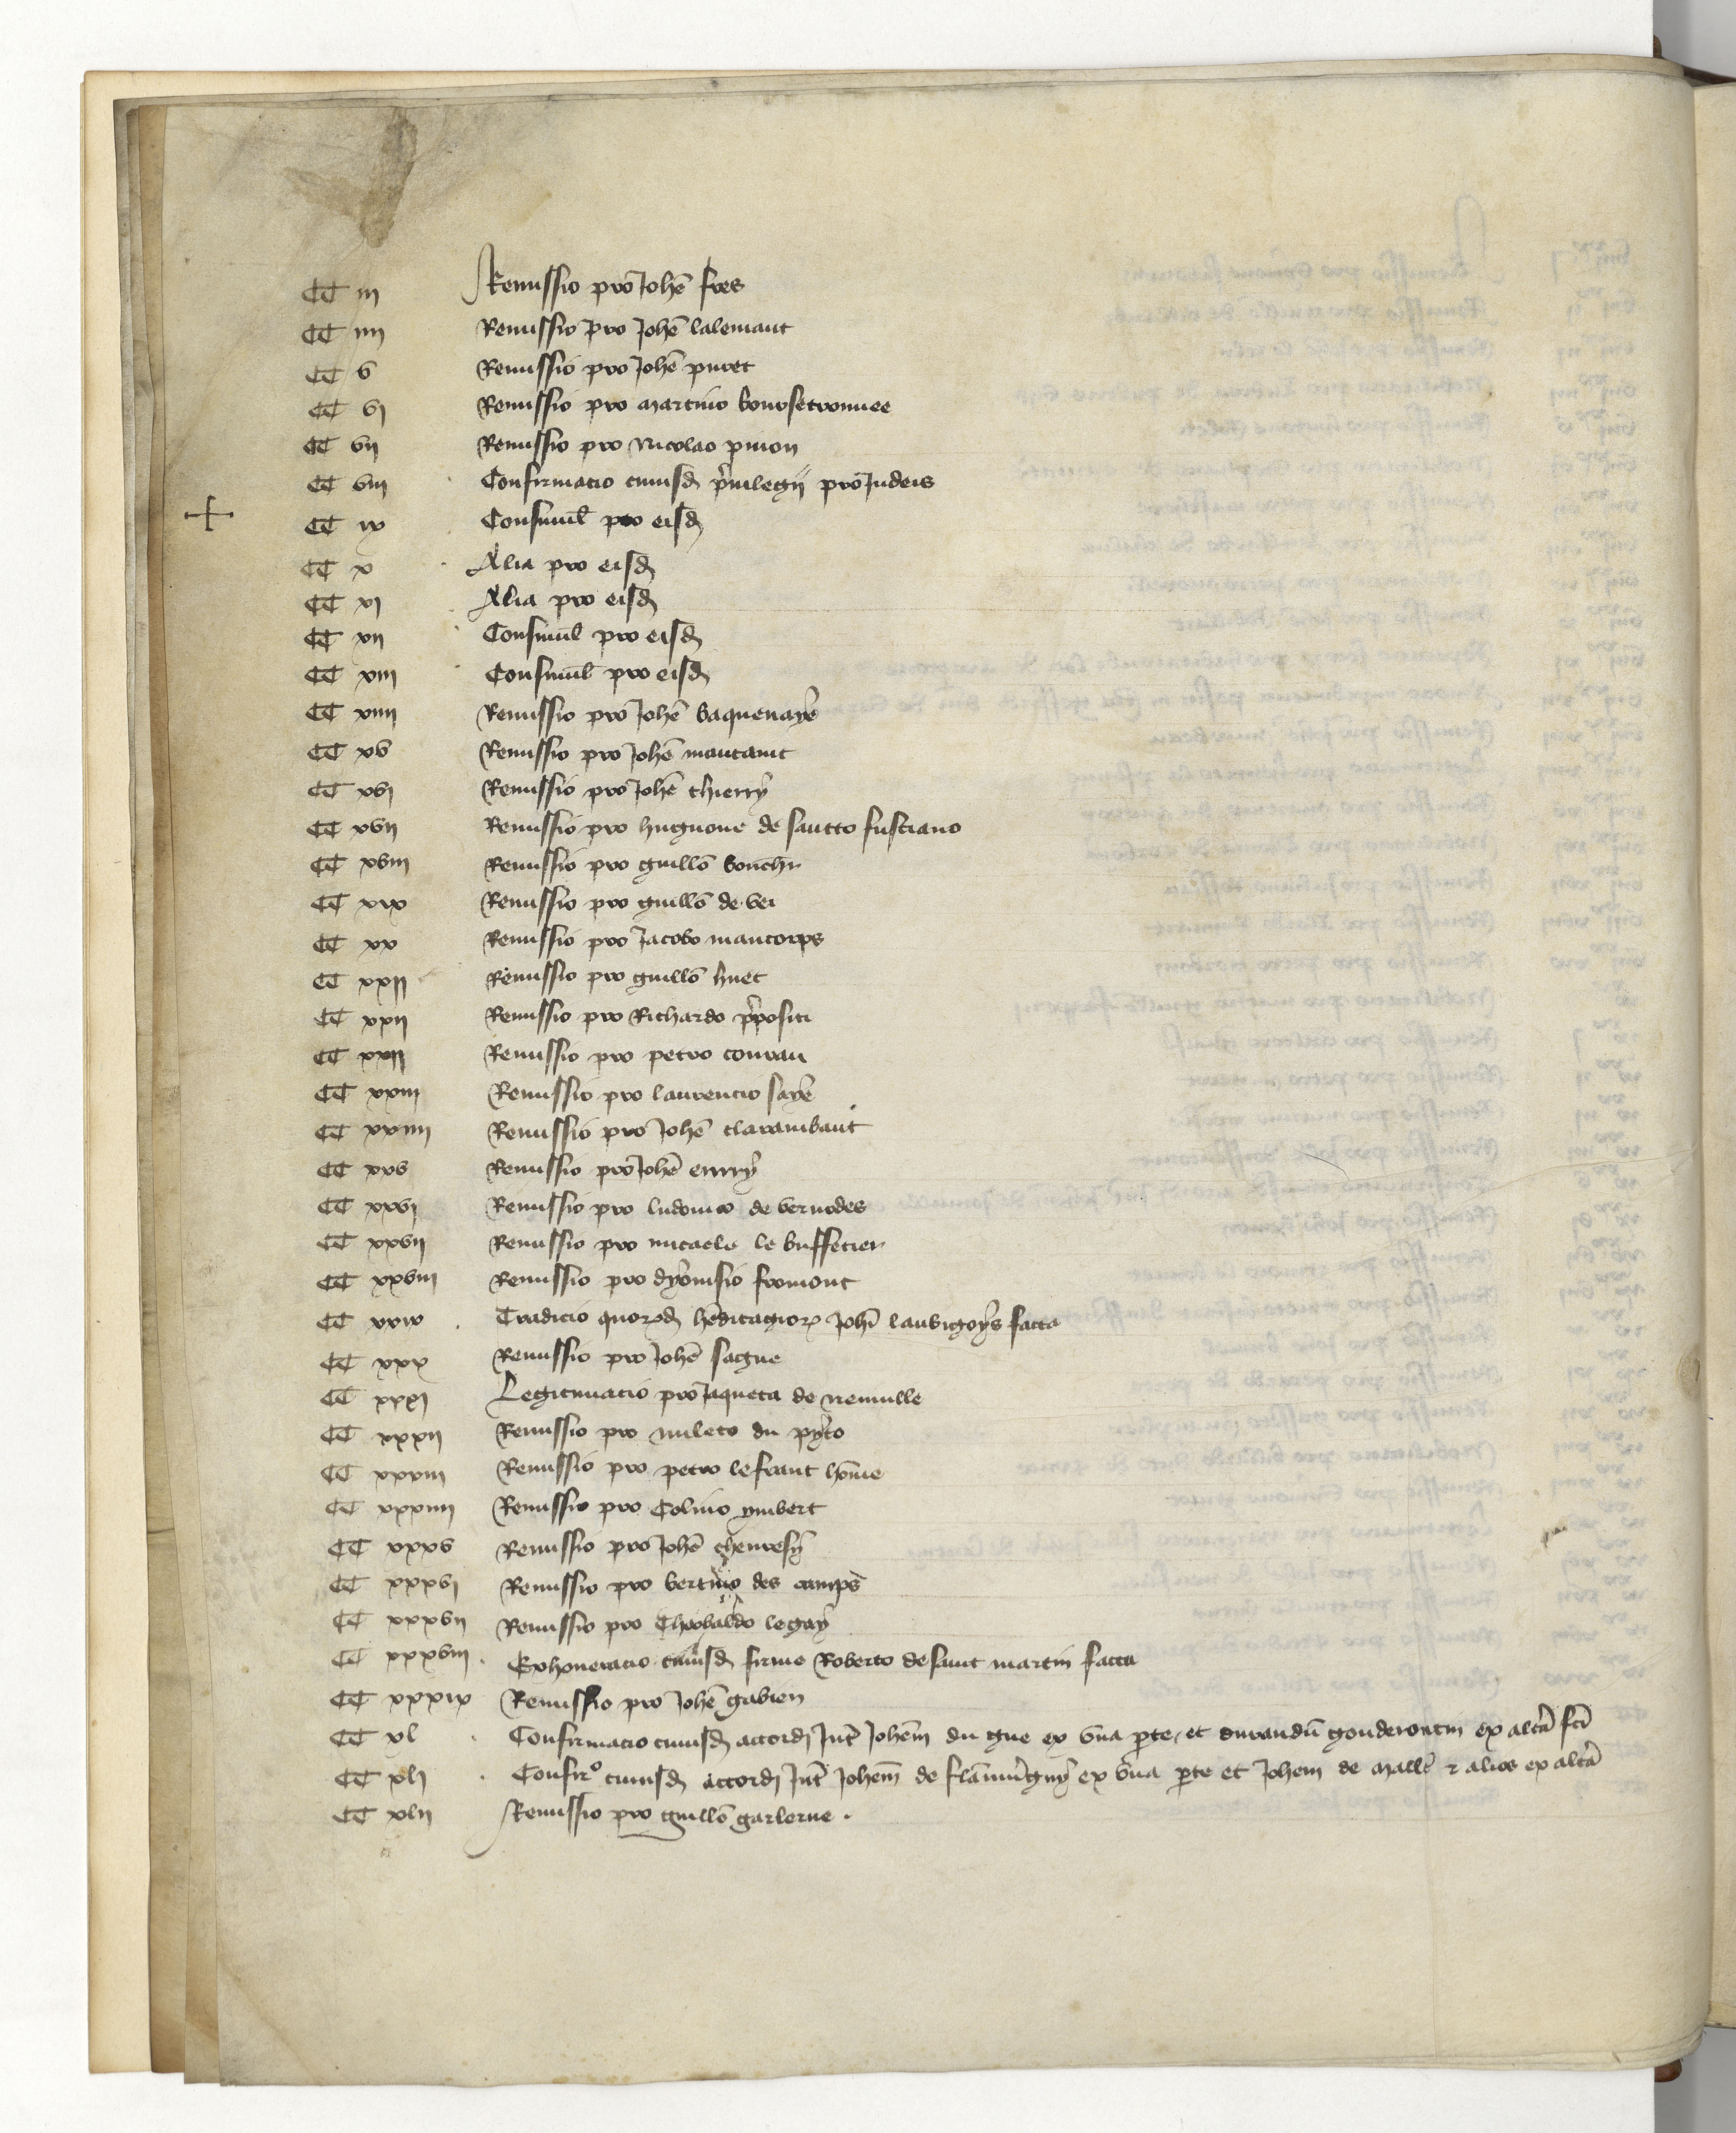 CC iij Remissio pro Johē fres
CC iiij Remissio pro Johē lalemant
CC v Remissio pro Johē puret
CC vj Remissio pro martino boursetrouuee
CC vij Remissio pro Nicolao pinon
CC viij Confirmacio cuiusd p̄uilegij pro Judeis
CC ix Consimil̄ pro eisd
CC x Alia pro eisd
CC xj Alia pro eisd
CC xij Consimil̄ pro eisd
CC xiij Consimil̄ pro eisd
CC xiiij Remissio pro Johē baquenaye
CC xv Remissio pro Johē mautanit
CC xvj Remissio pro Johē thierry
CC xvij Remissio pro hugnone de sancto fusciano
CC xviij Remissio pro guillō bouchr
CC xix Remissio pro guillō de ver
CC xx Remissio pro Jacobo mautorps
CC xxjj Remissio pro guillō huet
CC xxij Remissio pro Richardo p̄positi
CC xxjj Remissio pro petro conrau
CC xxiij Remissio pro laurencio saye
CC xxiiij Remissio pro Johē clarambaut
CC xxv Remissio pro Johē emry
CC xxvj Remissio pro ludouico de vernodes
CC xxvij Remissio pro micaele le buffetier
CC xxviij Remissio pro dyonisio fromont
CC xxix Tradicio quord hēditagior Johī lanbigoys facta
CC xxx Remissio pro Johē sague
CC xxxj Legitimacio pro Jaqueta de Remille
CC xxxij Remissio pro mileto du pyto
CC xxxiij Remissio pro petro lefranc hōme
CC xxxiiij Remissio pro Colino ymbert
CC xxxv Remissio pro Johē chemesy
CC xxxvj Remissio pro bertino des camps
CC xxxvij Remissio pro Theobaldo legay
CC xxxviij Exhoneracio cuiusd firme Roberto de saint martin facta
CC xxxix Remissio pro Johē gabien
CC xl Confirmacio cuiusd accordj Jnt̄ Johēm du gue ex vna parte et durandū gonderontm ex altā fcā
CC xlj Confir° cuiusd accordj Jnt̄ Johēm de flāmigny ex vna parte et Johem de mall̄ & alios ex altā
CC xlij Remissio pro guillō garlerne .